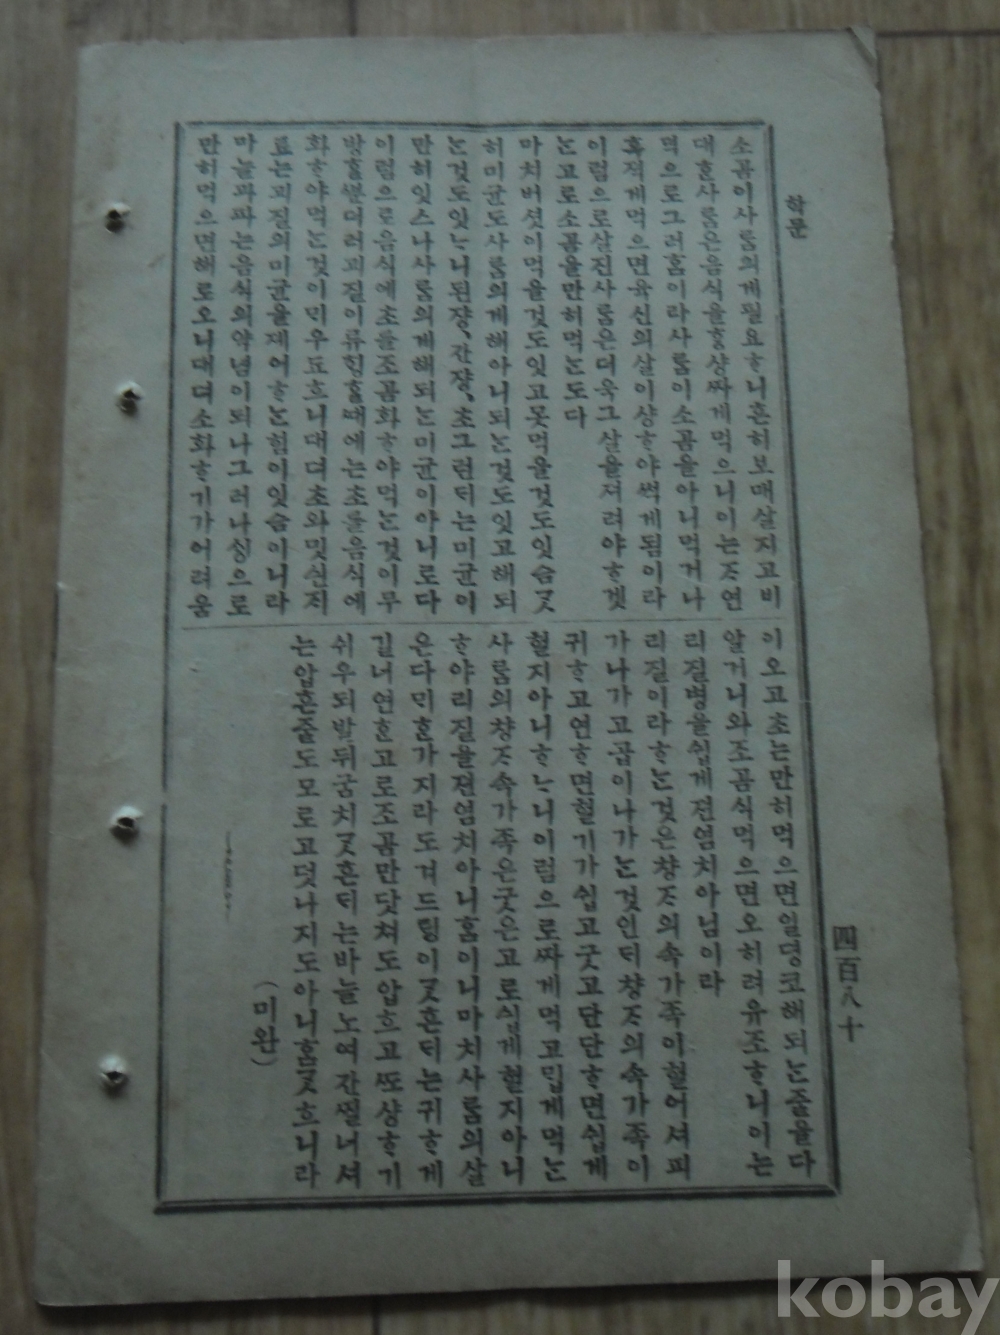 학문
소곰이사ᄅᆞᆷ의게필요ᄒᆞ니흔히보매살지고비
대ᄒᆞᆫ사ᄅᆞᆷ은음식을ᄒᆞᆼ샹짜게먹으니이는ᄌᆞ연
먹으로그러홈이라사ᄅᆞᆷ이소곰을아니먹거나
혹적게먹으면육신의살이샹ᄒᆞ야썩게됨이라
이럼으로살진사ᄅᆞᆷ은더욱그살을저려야ᄒᆞ겟
ᄂᆞᆫ고로소곰을만히먹ᄂᆞᆫ도다
마치버섯이먹을것도잇고못먹을것도잇슴ᄀᆞᆺ
히미균도사ᄅᆞᆷ의게해아니되ᄂᆞᆫ것도잇고해되
ᄂᆞᆫ것도잇ᄂᆞ니된쟝、간쟝、초그런ᄃᆡ는미균이
만히잇스나사ᄅᆞᆷ의게해되ᄂᆞᆫ미균이아니로다
이럼으로음식에초를조곰화ᄒᆞ야먹ᄂᆞᆫ것이무
방ᄒᆞᆯᄲᅮᆫ더러괴질이류ᄒᆡᆼᄒᆞᆯᄯᅢ에는초를음식에
화ᄒᆞ야먹ᄂᆞᆫ것이ᄆᆡ우됴흐니대뎌초와밋신지
료는괴질의미균을제어ᄒᆞᄂᆞᆫ힘이잇슴이니라
마늘과파는음식의약념이되나그러나싱으로
만히먹으면해로오니대뎌소화ᄒᆞ기가어려움
이오고초는만히먹으면일뎡코해되ᄂᆞᆫ줄을다
알거니와조곰식먹으면오히려유조ᄒᆞ니이는
리질병을쉽게젼염치아님이라
리질이라ᄒᆞᄂᆞᆫ것은챵ᄌᆞ의속가족이헐어져피
가나가고곱이나가ᄂᆞᆫ것인ᄃᆡ챵ᄌᆞ의속가족이
귀ᄒᆞ고연ᄒᆞ면헐기가쉽고굿고단단ᄒᆞ면쉽게
헐지아니ᄒᆞᄂᆞ니이럼으로짜게먹고ᄆᆡᆸ게먹ᄂᆞᆫ
사ᄅᆞᆷ의챵ᄌᆞ속가족은굿은고로쉽게헐지아니
ᄒᆞ야리질을젼염치아니홈이니마치사ᄅᆞᆷ의살
은다ᄆᆡᄒᆞᆫ가지라도겨드렁이ᄀᆞᆺᄒᆞᆫᄃᆡ는귀ᄒᆞ게
길너연ᄒᆞᆫ고로조곰만닷쳐도압흐고ᄯᅩ샹ᄒᆞ기
쉬우되발뒤굼치ᄀᆞᆺᄒᆞᆫᄃᆡ는바늘노여간ᄶᅵᆯ너셔
는압흔줄도모로고덧나지도아니홈ᄀᆞᆺ흐니라
(미완)
四百八十
kobay